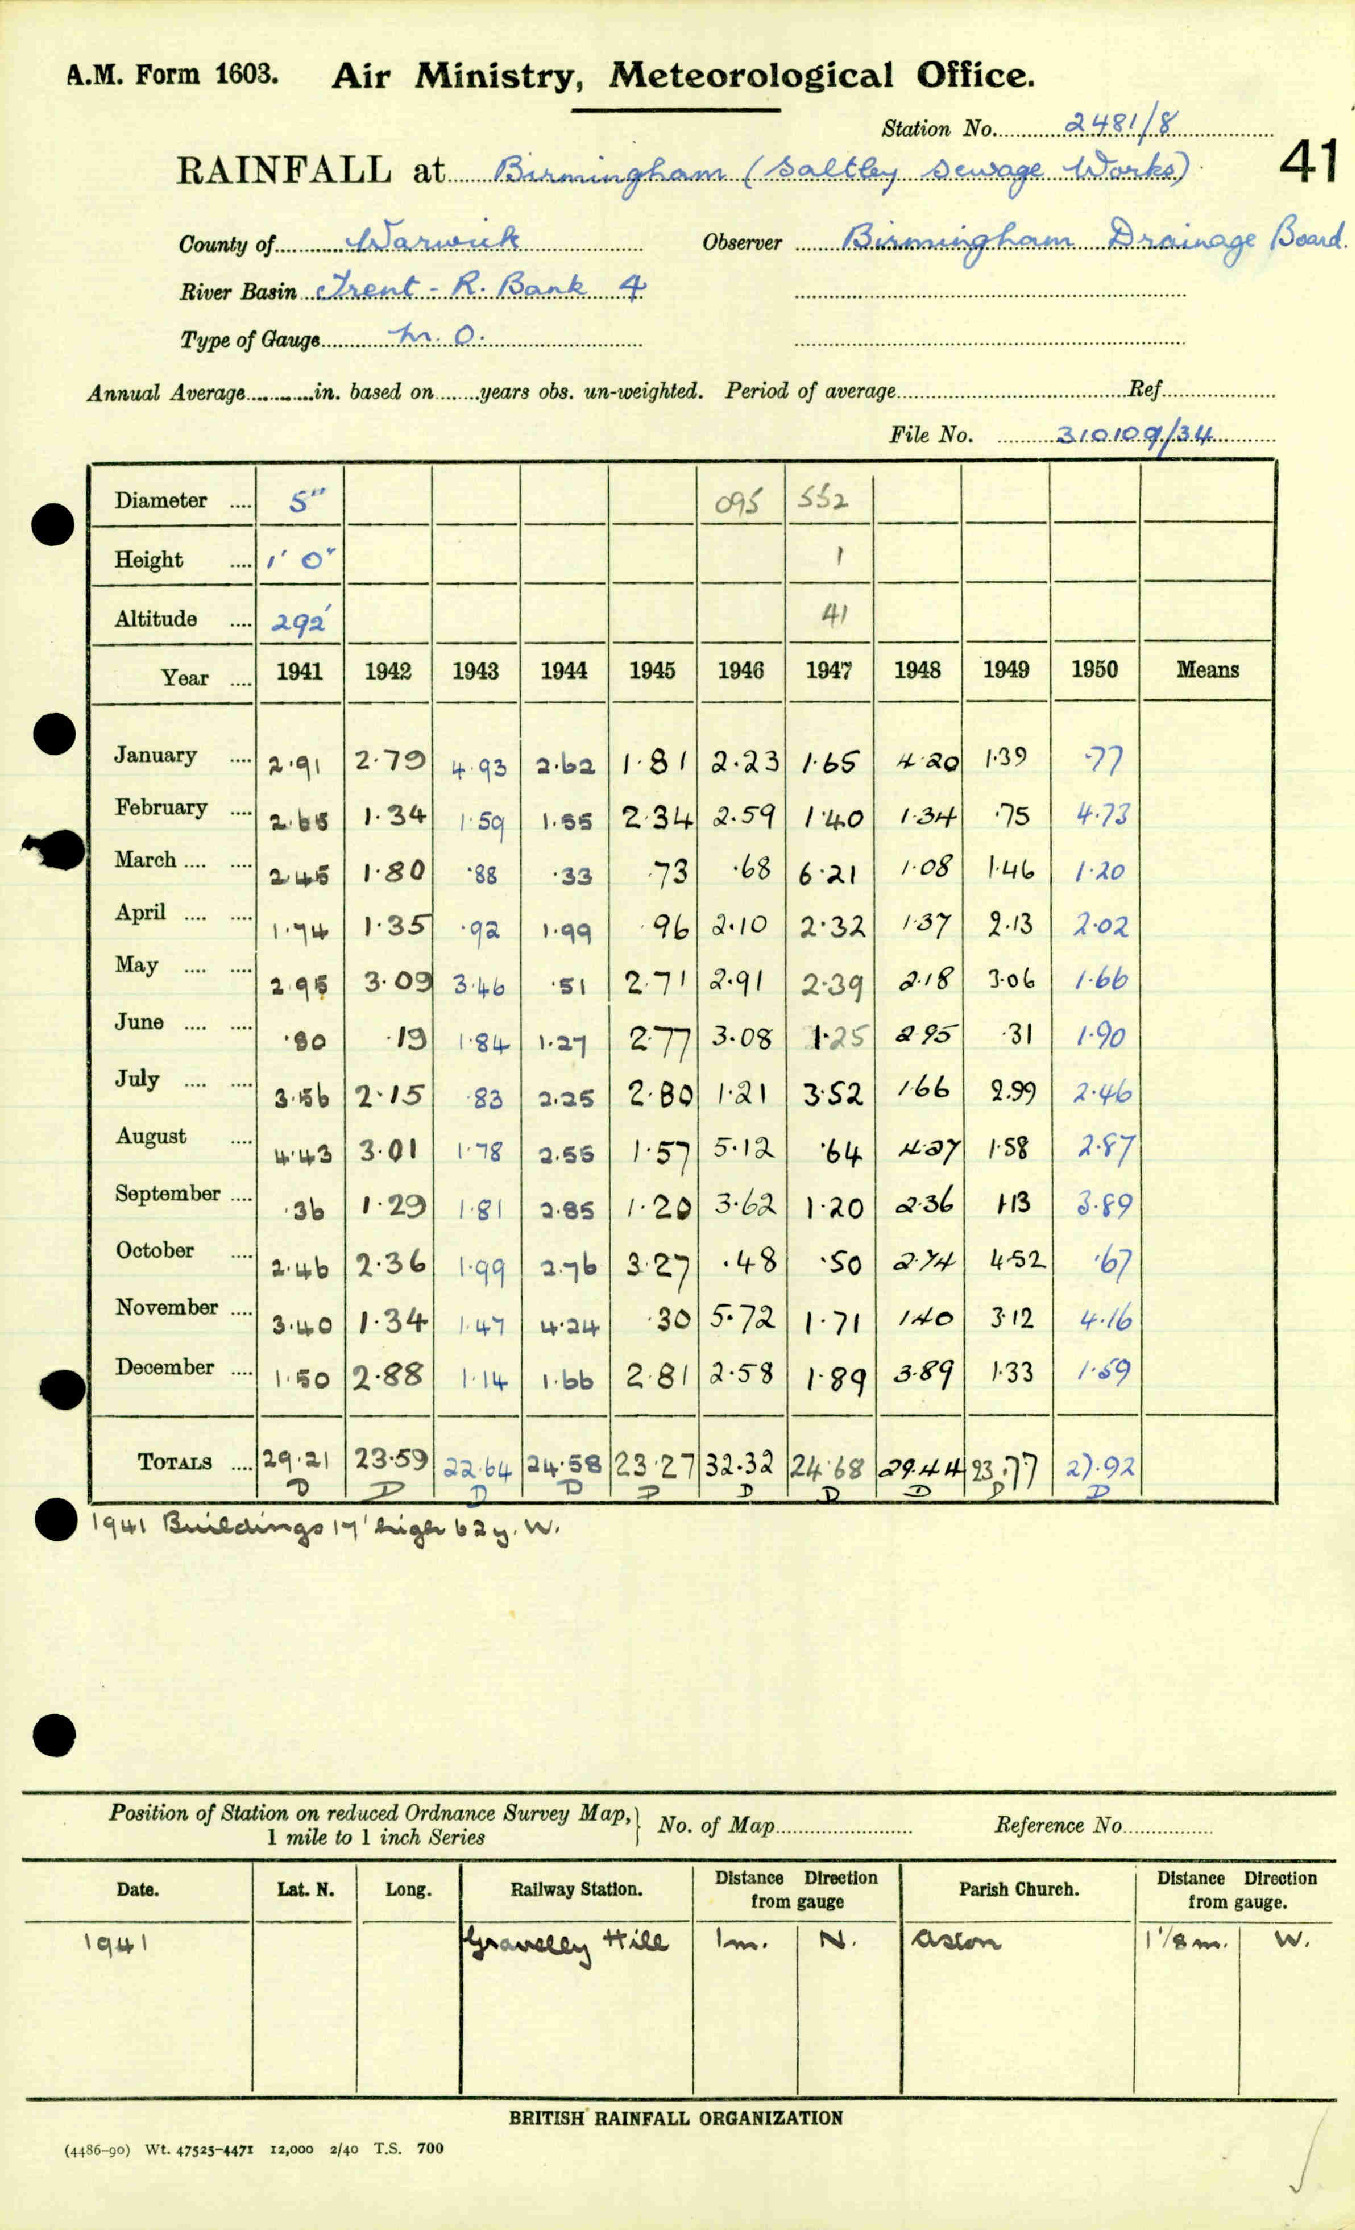 A.M. Form 1603. Air Ministry, Meteorological Office.
Station No. 2481/8
RAINFALL at Birmingham (Saltley Sewage Works) 41
County of Warwick Observer Birmingham Drainage Board.
River Basin Trent - R. Bank 4
Type of Gauge M. O.
Annual Average in. based on years obs. un-weighted. Period of average Ref
File No. 310109/34
Diameter 5" 095 552
Height 1' 0" 1
Altitude 292' 41
Year 1941 1942 1943 1944 1945 1946 1947 1948 1949 1950 Means
January 2.91 2.79 4.93 2.62 1.81 2.23 1.65 4.20 1.39 .77
February 2.65 1.34 1.59 1.55 2.34 2.59 1.40 1.34 .75 4.73
March 2.45 1.80 .88 .33 .73 .68 6.21 1.08 1.46 1.20
April 1.74 1.35 .92 1.99 .96 2.10 2.32 1.37 2.13 2.02
May 2.95 3.09 3.46 .51 2.71 2.91 2.39 2.18 3.06 1.66
June .80 .19 1.84 1.27 2.77 3.08 1.25 2.95 .31 1.90
July 3.56 2.15 .83 2.25 2.80 1.21 3.52 1.66 2.99 2.46
August 4.43 3.01 1.78 2.55 1.57 5.12 .64 4.27 1.58 2.87
September .36 1.29 1.81 2.85 1.20 3.62 1.20 2.36 1.13 3.89
October 2.46 2.36 1.99 2.76 3.27 .48 .50 2.74 4.52 .67
November 3.40 1.34 1.47 4.24 .30 5.72 1.71 1.40 3.12 4.16
December 1.50 2.88 1.14 1.66 2.81 2.58 1.89 3.89 1.33 1.59
TOTALS 29.21 23.59 22.64 24.58 23.27 32.32 24.68 29.44 23.77 27.92
D D D D D D D D D D
1941 Buildings 17' high 62y. W.
Position of Station on reduced Ordnance Survey Map, 1 mile to 1 inch Series } No. of Map Reference No.
Date. Lat. N. Long. Railway Station. Distance Direction from gauge Parish Church. Distance Direction from gauge.
1941 Gravelly Hill 1m. N. Aston 1 1/8 m. W.
BRITISH RAINFALL ORGANIZATION
(4486-90) Wt. 47525-4471 12,000 2/40 T.S. 700